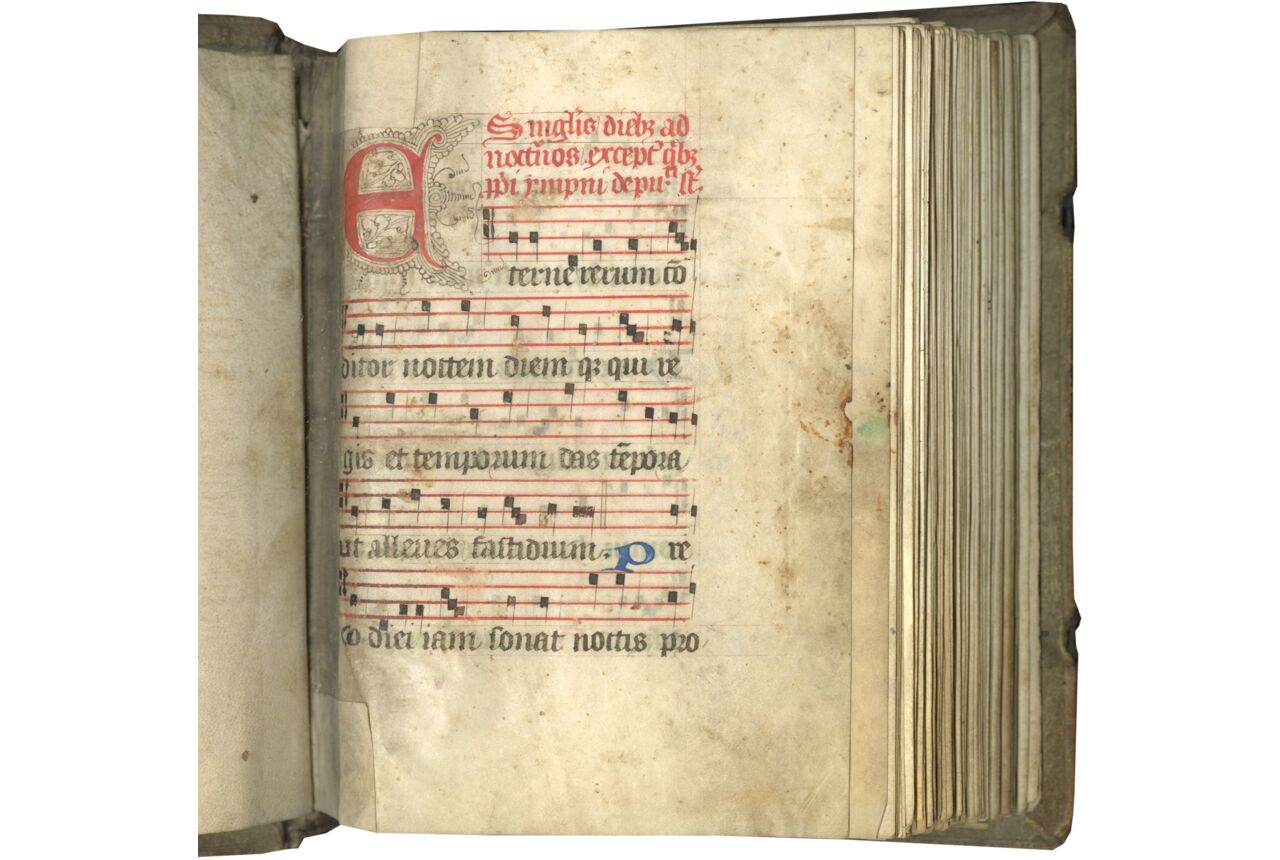 Singl'is dieb; ad
noctu̅os except' q̅b;
p̅p̅i ympni depu
Eterne rerum co̅
ditor noctem diem q; qui re
gis et temporum das te̅pora
ut alleues fastidium. Pre
co diei iam sonat noctis pro